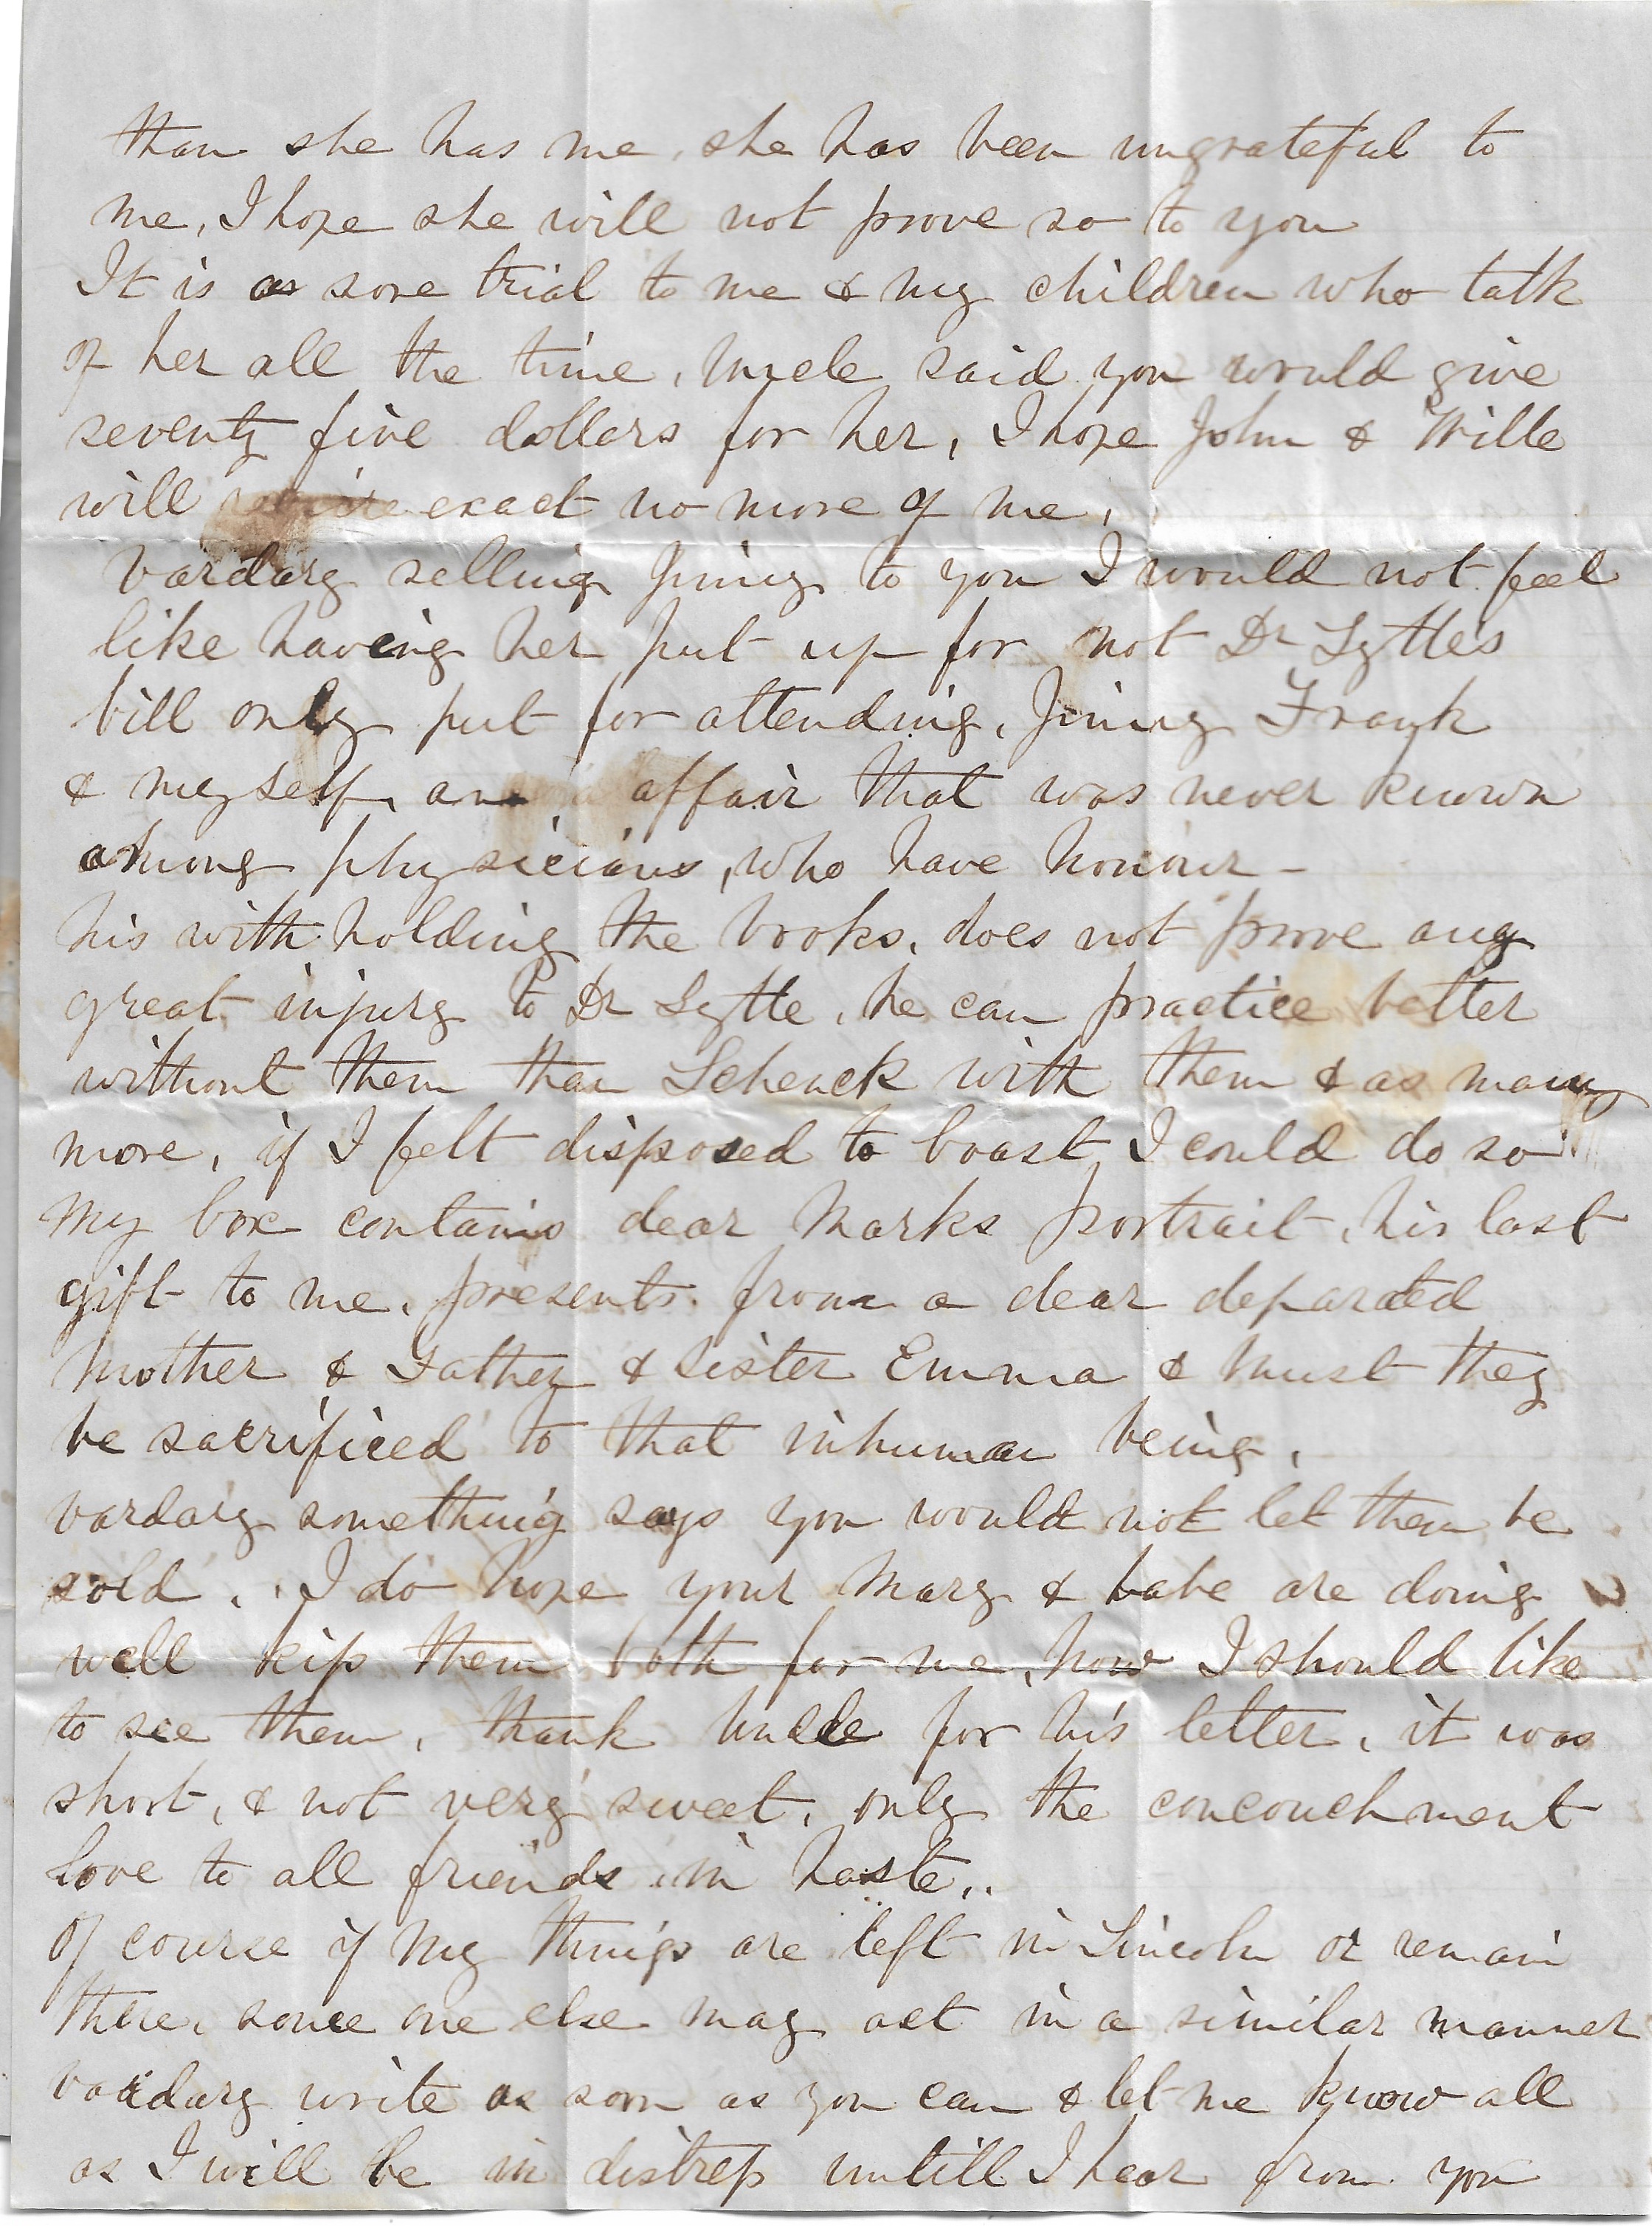 than she has me, she has been ungrateful to
me, I hope she will not prove so to you
It is a sore trial to me & my children who talk
of her all the time, Uncle said you would give
seventy five dollars for her, I hope John & Wille
will exact no more of me,
Vardary selling Jinny to you I would not feel
like having her put up for not Dr Lyttles
bill only put for attending, Jinny Frank
& myself, an affair that was never known
among physicians, who have honour -
his with holding the books, does not prove any
great injury to Dr Lyttle, he can practice better
without them than Schenck with them & as many
more, if I felt disposed to boast I could do so
My box contains dear Marks portrait, his last
gift to me, presents from a dear departed
Mother & Father & Sister Emma & must they
be sacrificed to that inhuman being,
Vardary something says you would not let them be
sold, I do hope your Mary & babe are doing
well kiss them both for me, how I should like
to see them, thank Uncle for his letter, it was
short, & not very sweet, only the concouchment
Love to all friends in haste,
Of course if my things are left in Lincoln or remain
there, some one else may act in a similar manner
Vardary write as soon as you can & let me know all
as I will be in distress untill I hear from you